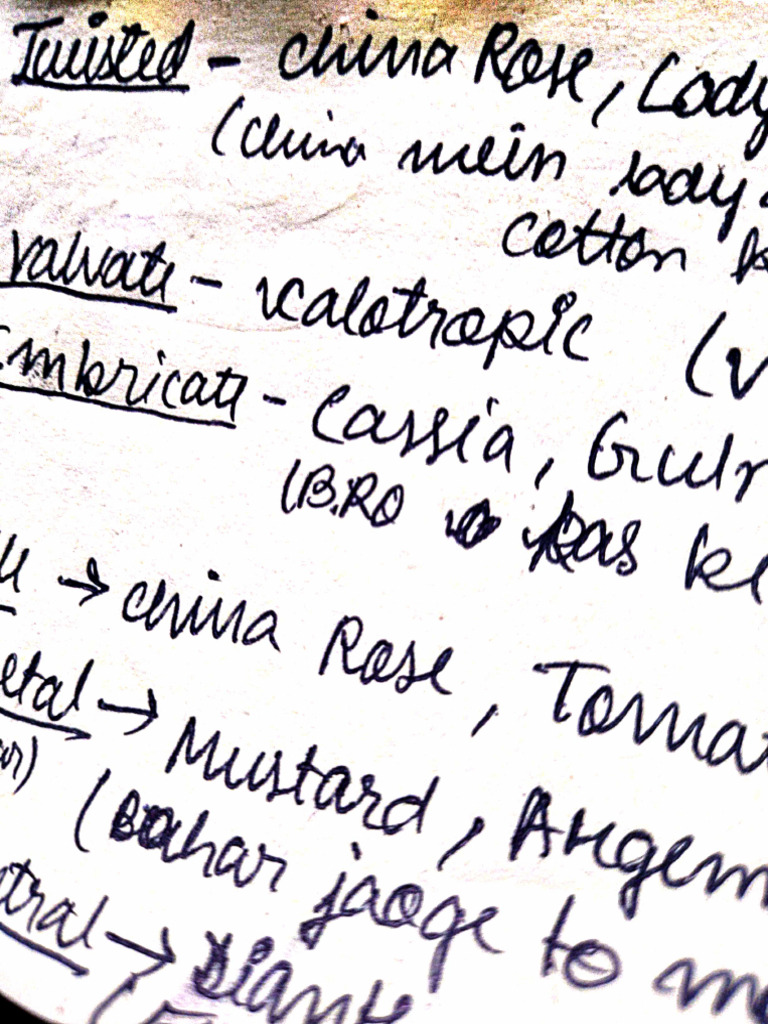 Twisted - china Rose, Lady
(china mein lady
cotton
valvate - Kalotropic (v
Imbricate - Cassia, Gul
(B.RO bas ke
→ china Rose, Tomat
etal → Mustard, Argem
(Bahar jaoge to m
tral → Diant